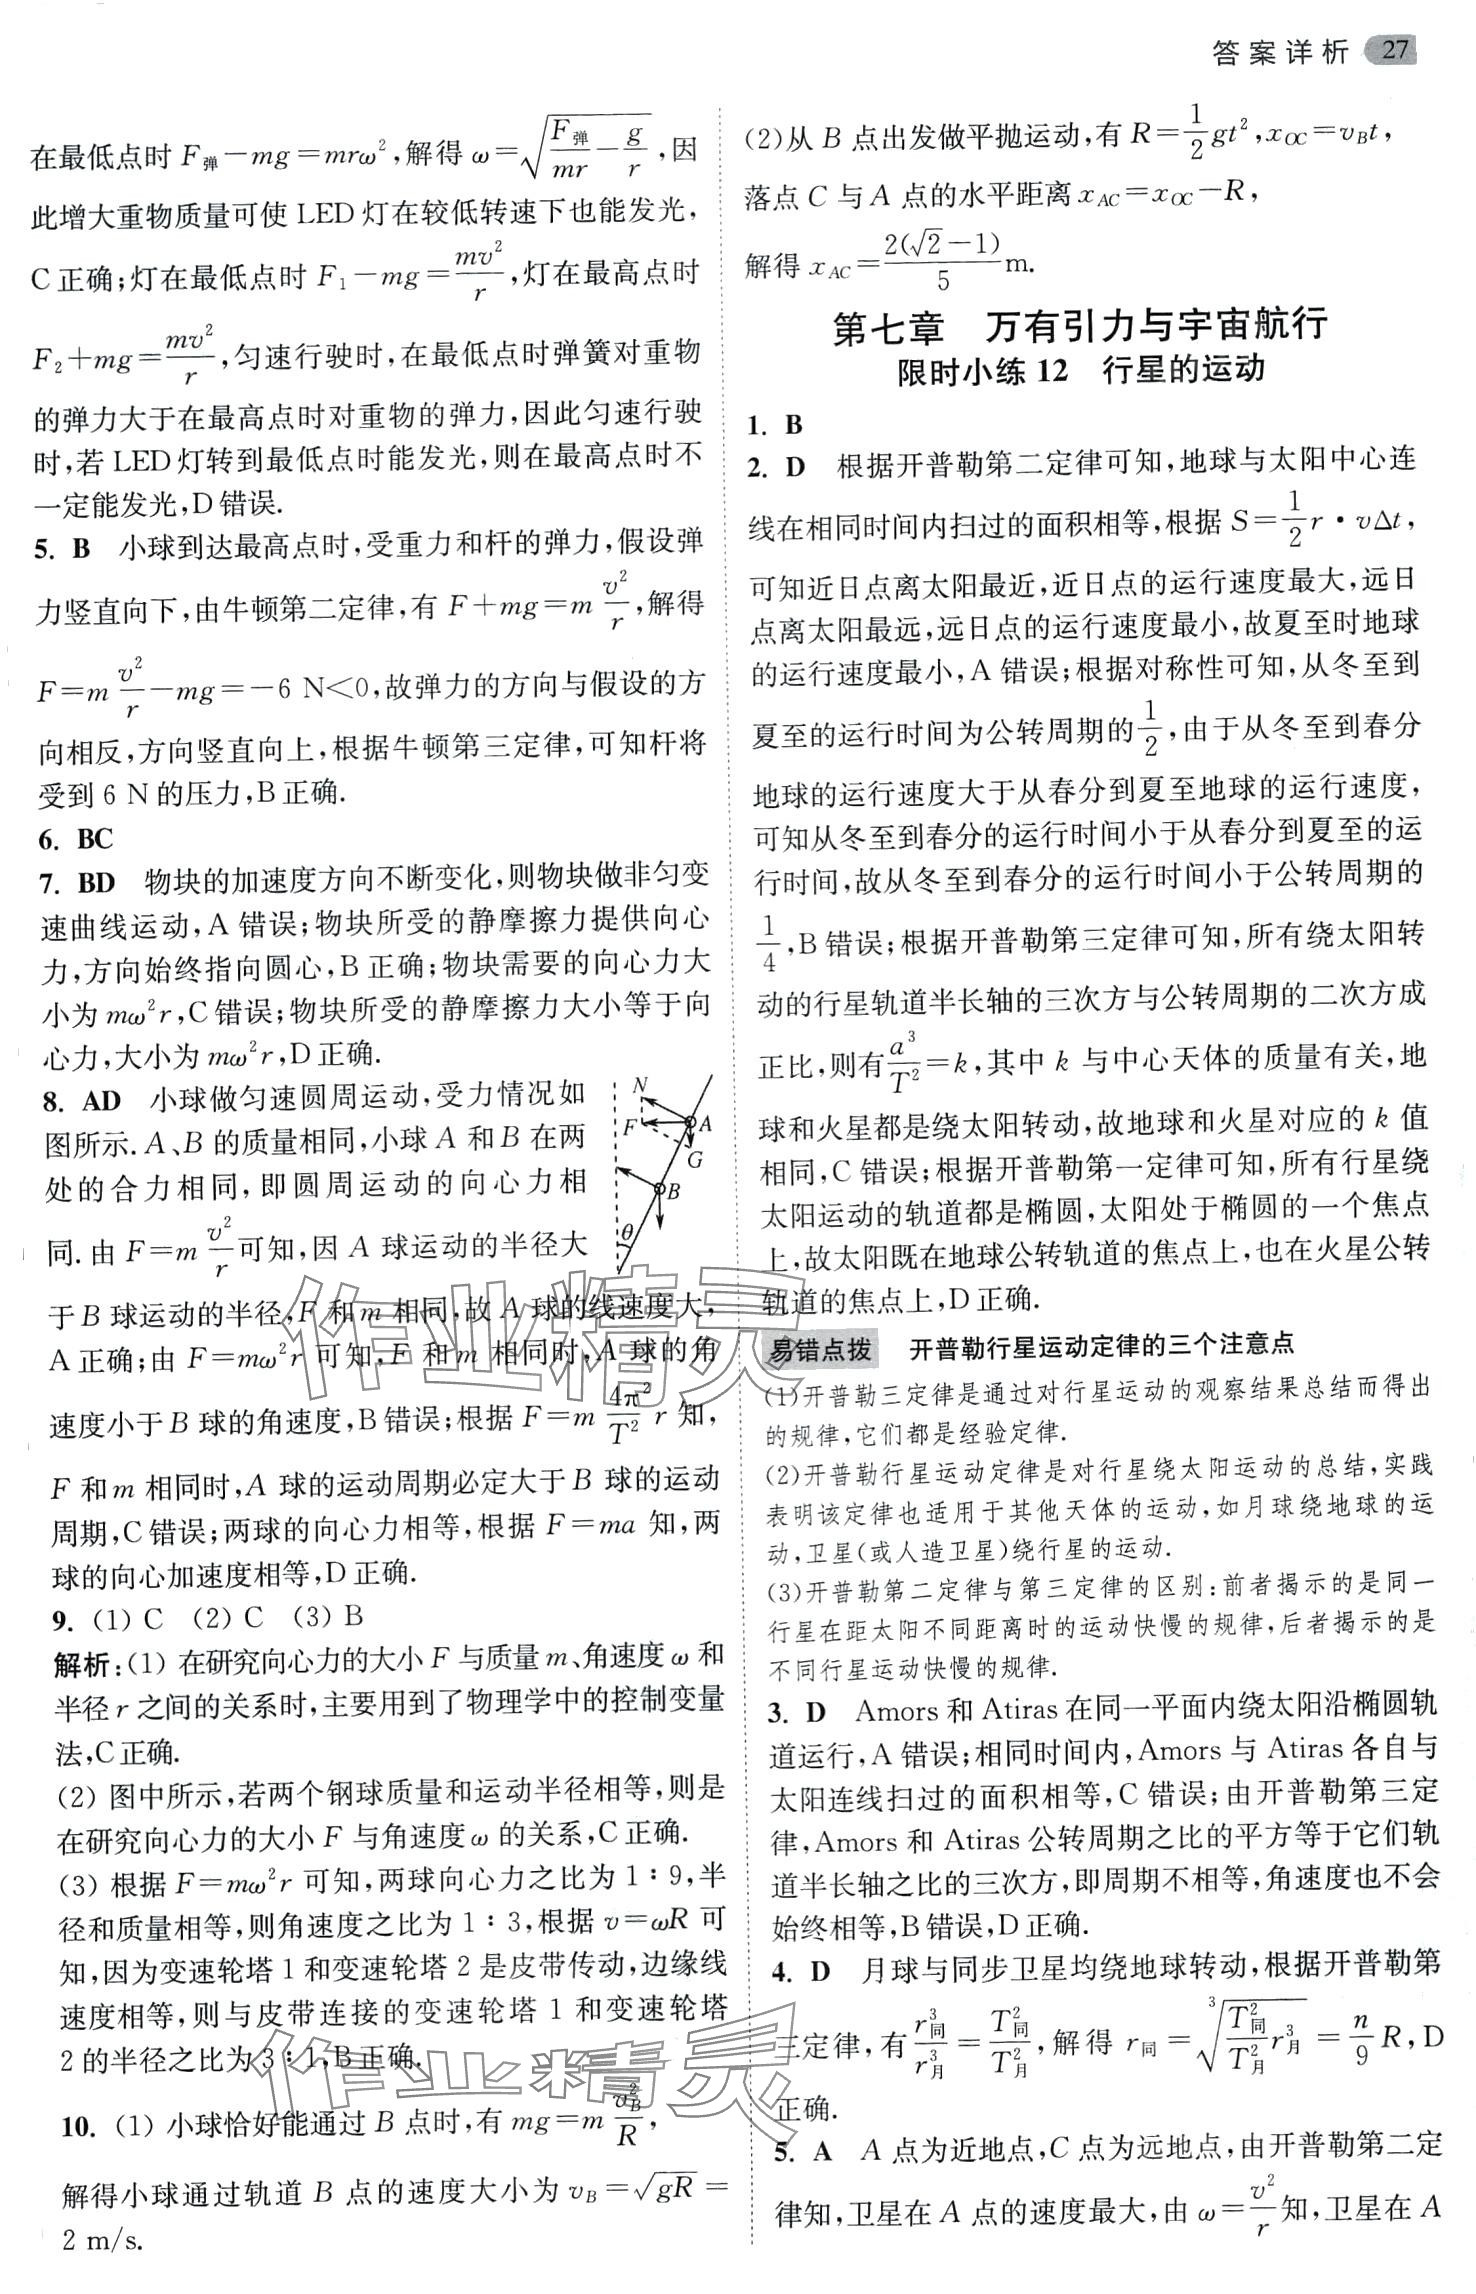 答案详析 27
在最低点时 F弹－mg＝mrω²,解得 ω＝√(F弹/mr－g/r),因
此增大重物质量可使 LED 灯在较低转速下也能发光,
C 正确;灯在最低点时 F₁－mg＝mv²/r,灯在最高点时
F₂＋mg＝mv²/r,匀速行驶时,在最低点时弹簧对重物
的弹力大于在最高点时对重物的弹力,因此匀速行驶
时,若 LED 灯转到最低点时能发光,则在最高点时不
一定能发光,D 错误.
5. B 小球到达最高点时,受重力和杆的弹力,假设弹
力竖直向下,由牛顿第二定律,有 F＋mg＝m v²/r,解得
F＝m v²/r－mg＝－6 N＜0,故弹力的方向与假设的方
向相反,方向竖直向上,根据牛顿第三定律,可知杆将
受到 6 N 的压力,B 正确.
6. BC
7. BD 物块的加速度方向不断变化,则物块做非匀变
速曲线运动,A 错误;物块所受的静摩擦力提供向心
力,方向始终指向圆心,B 正确;物块需要的向心力大
小为 mω²r,C 错误;物块所受的静摩擦力大小等于向
心力,大小为 mω²r,D 正确.
8. AD 小球做匀速圆周运动,受力情况如
图所示.A、B 的质量相同,小球 A 和 B 在两
处的合力相同,即圆周运动的向心力相
同.由 F＝m v²/r 可知,因 A 球运动的半径大
N
F
A
G
B
θ
于 B 球运动的半径,F 和 m 相同,故 A 球的线速度大,
A 正确;由 F＝mω²r 可知,F 和 m 相同时,A 球的角
速度小于 B 球的角速度,B 错误;根据 F＝m 4π²/T² r 知,
F 和 m 相同时,A 球的运动周期必定大于 B 球的运动
周期,C 错误;两球的向心力相等,根据 F＝ma 知,两
球的向心加速度相等,D 正确.
9. (1) C (2) C (3) B
解析:(1) 在研究向心力的大小 F 与质量 m、角速度 ω 和
半径 r 之间的关系时,主要用到了物理学中的控制变量
法,C 正确.
(2) 图中所示,若两个钢球质量和运动半径相等,则是
在研究向心力的大小 F 与角速度 ω 的关系,C 正确.
(3) 根据 F＝mω²r 可知,两球向心力之比为 1∶9,半
径和质量相等,则角速度之比为 1∶3,根据 v＝ωR 可
知,因为变速轮塔 1 和变速轮塔 2 是皮带传动,边缘线
速度相等,则与皮带连接的变速轮塔 1 和变速轮塔
2 的半径之比为 3∶1,B 正确.
10. (1) 小球恰好能通过 B 点时,有 mg＝m v_B²/R,
解得小球通过轨道 B 点的速度大小为 v_B＝√gR＝
2 m/s.
(2)从 B 点出发做平抛运动,有 R＝1/2 gt²,x_OC＝v_B t,
落点 C 与 A 点的水平距离 x_AC＝x_OC－R,
解得 x_AC＝2(√2－1)/5 m.
第七章 万有引力与宇宙航行
限时小练 12 行星的运动
1. B
2. D 根据开普勒第二定律可知,地球与太阳中心连
线在相同时间内扫过的面积相等,根据 S＝1/2 r·vΔt,
可知近日点离太阳最近,近日点的运行速度最大,远日
点离太阳最远,远日点的运行速度最小,故夏至时地球
的运行速度最小,A 错误;根据对称性可知,从冬至到
夏至的运行时间为公转周期的1/2,由于从冬至到春分
地球的运行速度大于从春分到夏至地球的运行速度,
可知从冬至到春分的运行时间小于从春分到夏至的运
行时间,故从冬至到春分的运行时间小于公转周期的
1/4,B 错误;根据开普勒第三定律可知,所有绕太阳转
动的行星轨道半长轴的三次方与公转周期的二次方成
正比,则有a³/T²＝k,其中 k 与中心天体的质量有关,地
球和火星都是绕太阳转动,故地球和火星对应的 k 值
相同,C 错误;根据开普勒第一定律可知,所有行星绕
太阳运动的轨道都是椭圆,太阳处于椭圆的一个焦点
上,故太阳既在地球公转轨道的焦点上,也在火星公转
轨道的焦点上,D 正确.
易错点拨 开普勒行星运动定律的三个注意点
(1)开普勒三定律是通过对行星运动的观察结果总结而得出
的规律,它们都是经验定律.
(2)开普勒行星运动定律是对行星绕太阳运动的总结,实践
表明该定律也适用于其他天体的运动,如月球绕地球的运
动,卫星(或人造卫星)绕行星的运动.
(3)开普勒第二定律与第三定律的区别:前者揭示的是同一
行星在距太阳不同距离时的运动快慢的规律,后者揭示的是
不同行星运动快慢的规律.
3. D Amors 和 Atiras 在同一平面内绕太阳沿椭圆轨
道运行,A 错误;相同时间内,Amors 与 Atiras 各自与
太阳连线扫过的面积相等,C 错误;由开普勒第三定
律,Amors 和 Atiras 公转周期之比的平方等于它们轨
道半长轴之比的三次方,即周期不相等,角速度也不会
始终相等,B 错误,D 正确.
4. D 月球与同步卫星均绕地球转动,根据开普勒第
三定律,有 r同³/r月³＝T同²/T月²,解得 r同＝³√(T同²/T月² r月³)＝n/9 R,D
正确.
5. A A 点为近地点,C 点为远地点,由开普勒第二定
律知,卫星在 A 点的速度最大,由 ω＝v²/r知,卫星在 A
作业精灵
作业精灵